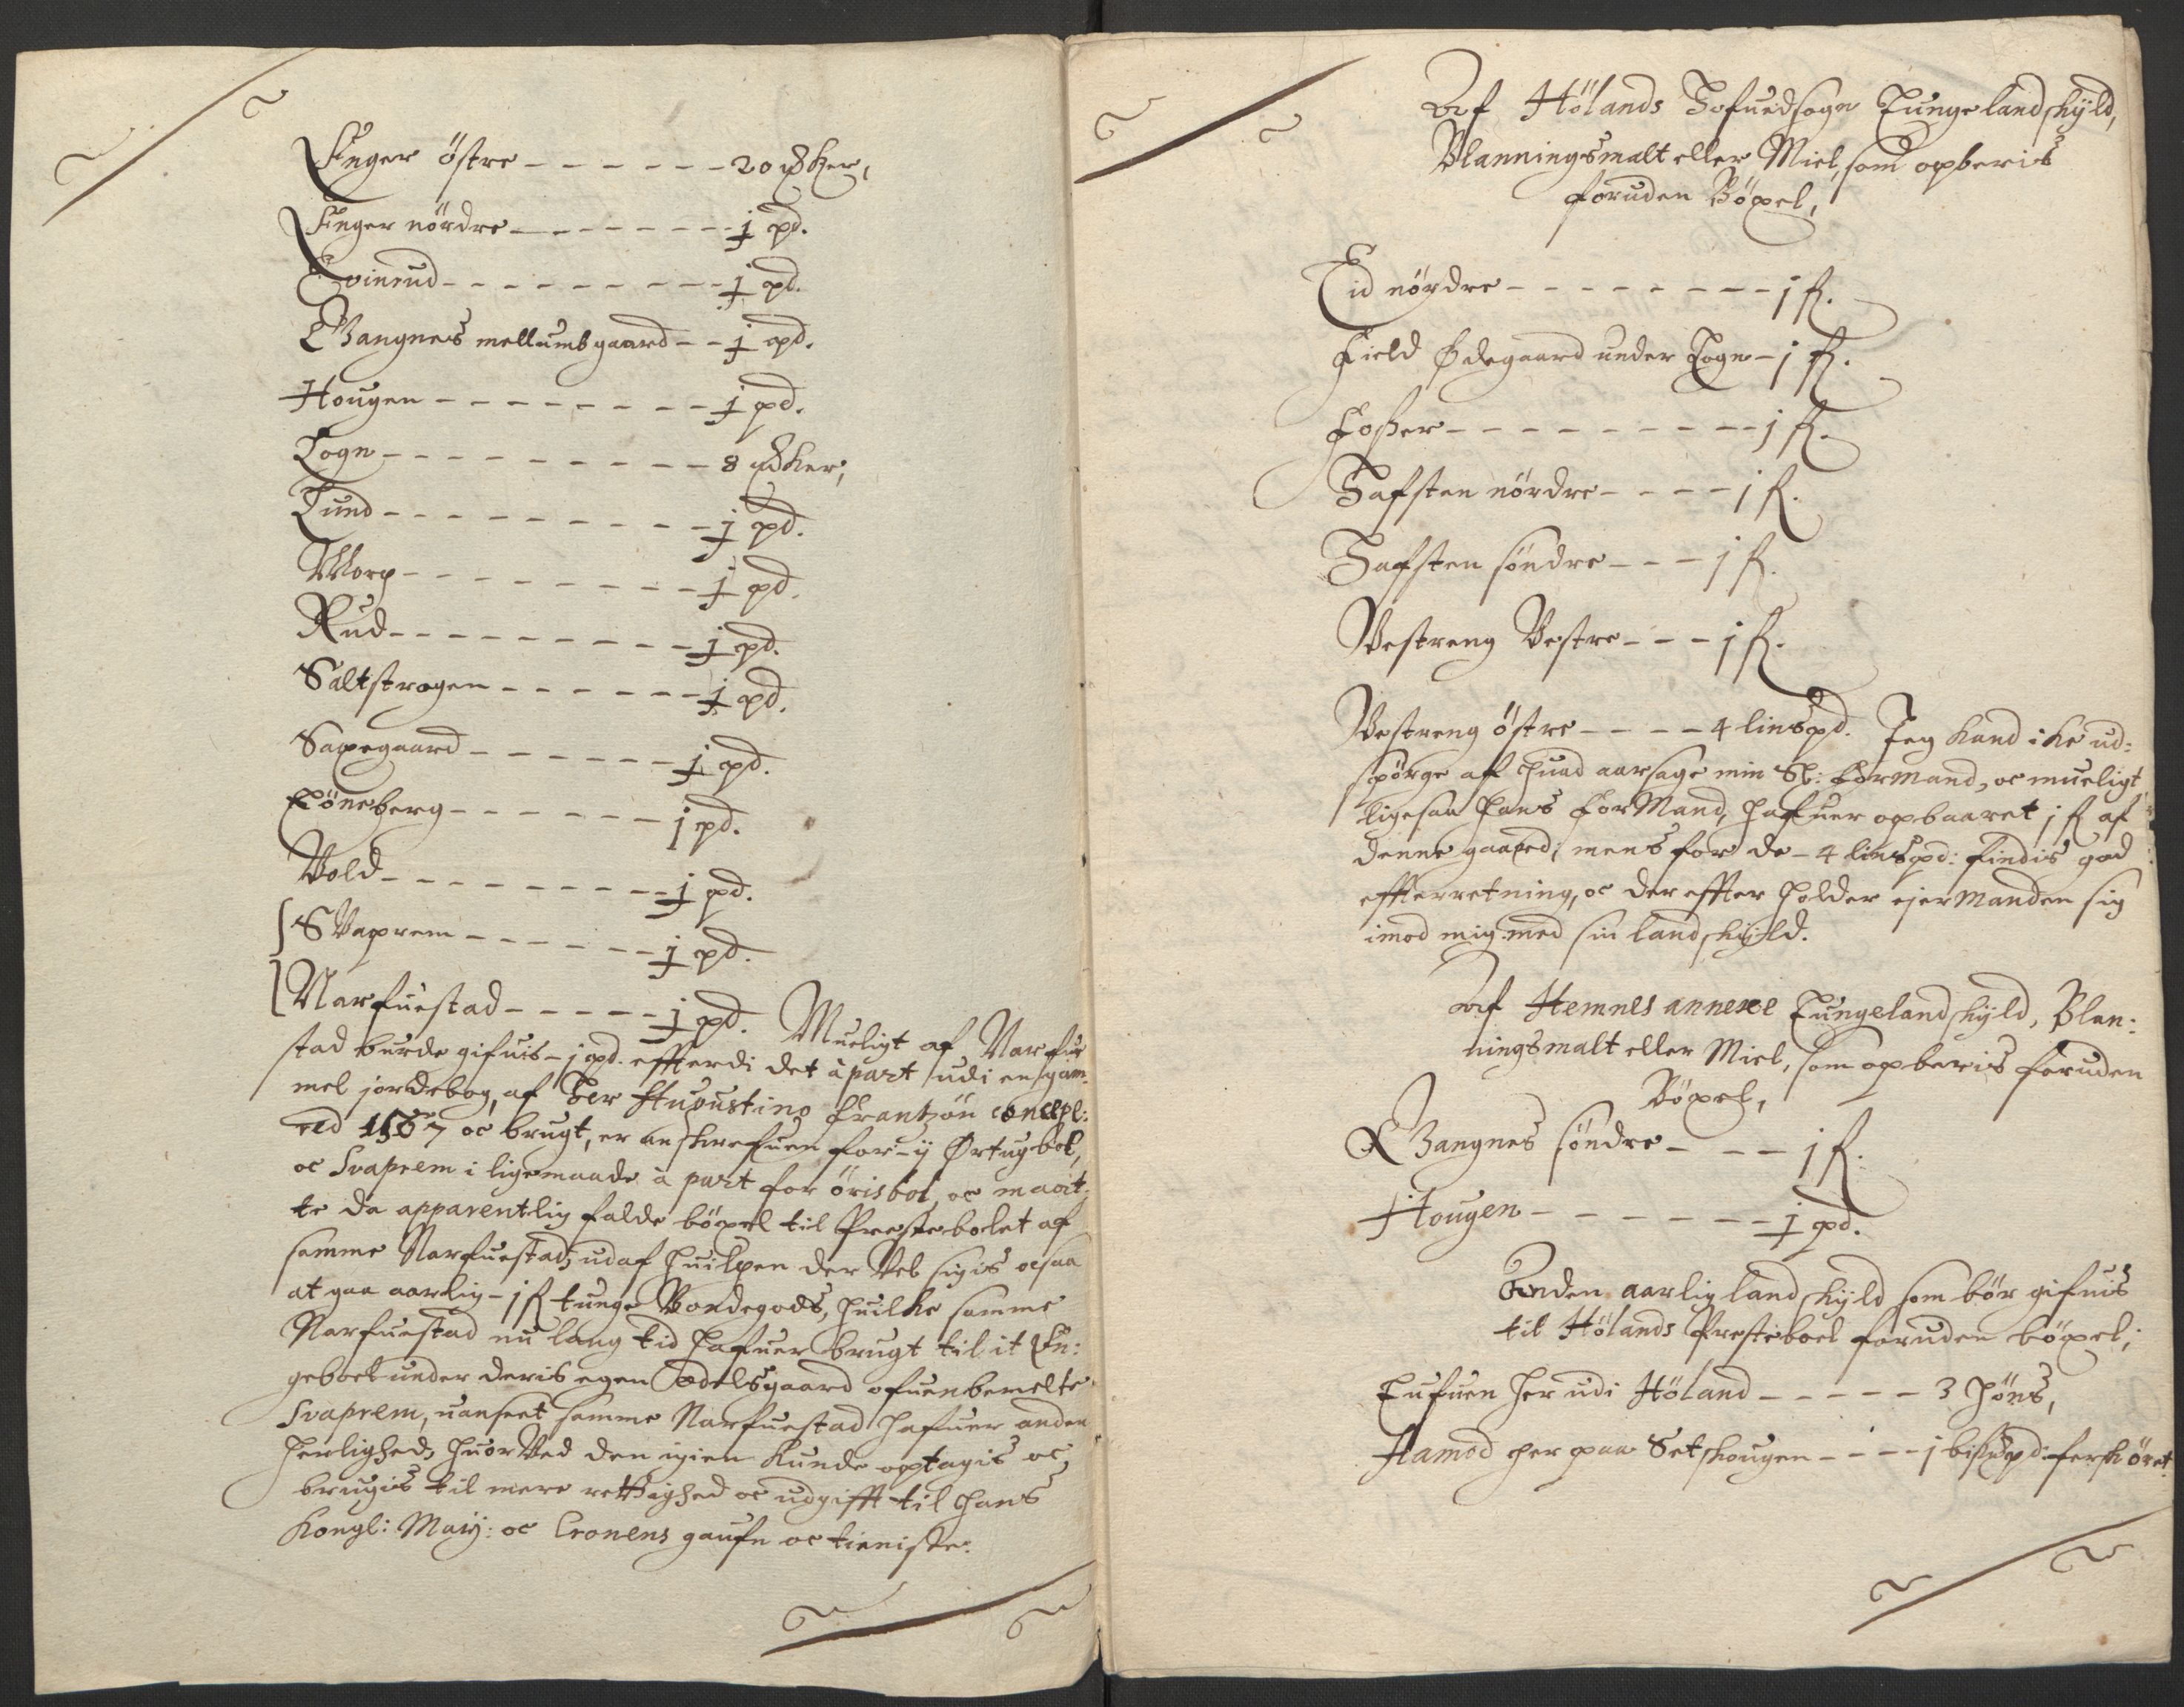 Finger östre - - - - - - 20 skker,
Finger nördre - - - - - - - - j pd.
Evinrud - - - - - - - - - j pd.
Bangnes mellumbgaard - - j pd.
Hougen - - - - - - - - j pd.
Logn - - - - - - - - - 8 skker,
Lund - - - - - - - - - - j pd.
Morp - - - - - - - - - j pd.
Rud - - - - - - - - - j pd.
Saltstrogen - - - - - - j pd.
Sapegaard - - - - - - j pd.
Töneberg - - - - - - j pd.
Vold - - - - - - - - - j pd.
SVaprem - - - - - - j pd.
Narfuestad - - - - - j pd. Mueligt af Narfue
stad burde gifuis - j pd. effterdi det à part udi en gam-
mel jordebog, af Her Augustino Frantzön concepl:
red 1567 oc brugt, er anskrefuen for - ij Örtugbol,
oc Svaprem i ligemaade à part for örisbol, oc maat-
te da apparentlig falde böxel til Prestebolet af
samme Narfuestad, udaf huilken der Veb sigis ocsaa
at gaa aarlig - j ƒ tunge Bondegods, huilke samme
Narfuestad nu lang tid hafuer brugt til it En-
geboel under deris egen Odelsgaard ofuenbemelte
Svaprem, uanseet samme Narfuestad hafuer anden
herlighed, huor Ved den igien kunde optagis oc
brugis til mere rettighed oc udgifft til Hans
Kongl: Maij: oc Cronens gaufn oc tieniste.
Af Hölands Hofuedsogn Tunge landskyld,
Blanningsmalt eller Miel, som opberis
foruden Böxel,
Eid nördre - - - - - - - - j ƒ.
Field Ödegaard under Logn - j ƒ.
Fosser - - - - - - - - - j ƒ.
Hafsten nördre - - - - j ƒ.
Hafsten söndre - - - j ƒ.
Vestreng Vestre - - - j ƒ.
Vestreng östre - - - - 4 lisspd. Jeg kand ike ud-
spörge af huad aarsage min Sl: Formand, oc mueligt
ligesaa hans ForMand, hafuer opbaaret j ƒ af
denne gaard; mens for de - 4 lisspd: findis god
effterretning, oc der effter holder ejermanden sig
imod mig med sin landskyld.
Af Hemnes annexe Tungelandskyld, Blan-
ningsmalt eller Miel, som opberis foruden
Böxel,
Bangnes söndre - - - j ƒ.
Hougen - - - - - - - j pd.
Anden aarlig landskyld som bör gifuis
til Hölands Presteboel foruden böxel;
Tufuen her udi Höland - - - - - 3 höns,
Hamod her paa Setskougen - - - j bismpd: fersk öret